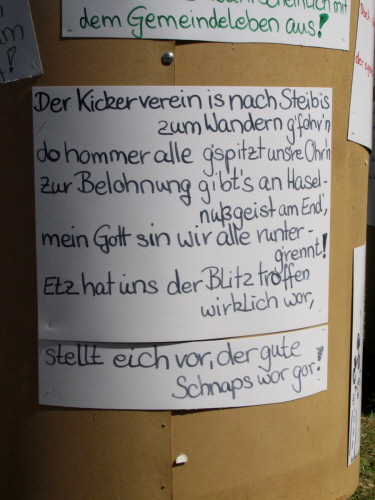 dem Gemeindeleben aus!
Der Kickerverein is nach Steibis
zum Wandern g'fohr'n
do hommer alle g'spitzt uns're Ohr'n
zur Belohnung gibt's an Hasel-
nußgeist am End',
mein Gott sin wir alle runter-
grennt!
Etz hat uns der Blitz troffen
wirklich wor,
stellt eich vor, der gute
Schnaps wor gor!